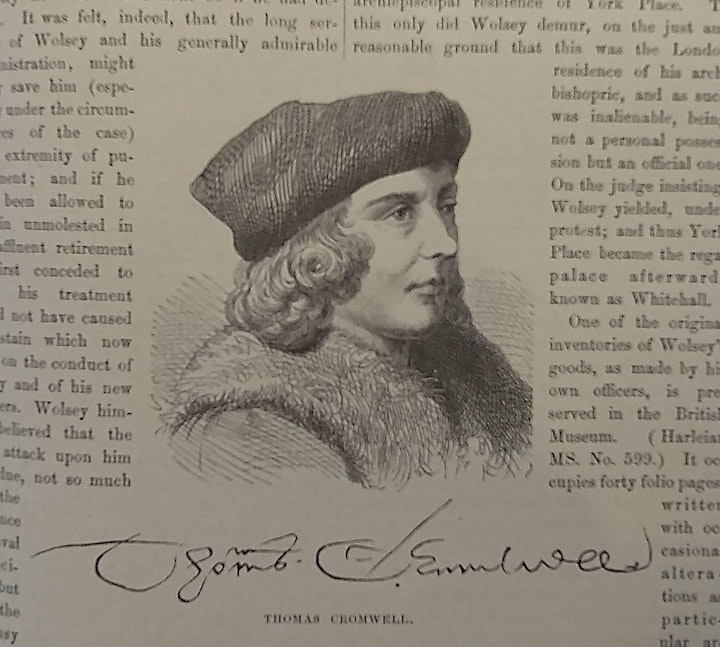 It was felt, indeed, that the long ser-
of Wolsey and his generally admirable
nistration, might
save him (espe-
under the circum-
es of the case)
extremity of pu-
ment; and if he
been allowed to
in unmolested in
affluent retirement
irst conceded to
his treatment
not have caused
stain which now
on the conduct of
y and of his new
ers. Wolsey him-
believed that the
attack upon him
due, not so much
the
nce
val
ci-
but
the
asy
archiepiscopal residence of York Place. T
this only did Wolsey demur, on the just an
reasonable ground that this was the Londo
residence of his arch
bishopric, and as suc
was inalienable, being
not a personal posses
sion but an official one
On the judge insisting
Wolsey yielded, unde
protest; and thus York
Place became the rega
palace afterward
known as Whitehall.
One of the origina
inventories of Wolsey'
goods, as made by hi
own officers, is pre
served in the British
Museum. (Harleian
MS. No. 599.) It oc
cupies forty folio pages
written
with oc
casiona
altera-
tions as
partic-
ular ar-
Thomas Crumwell
THOMAS CROMWELL.